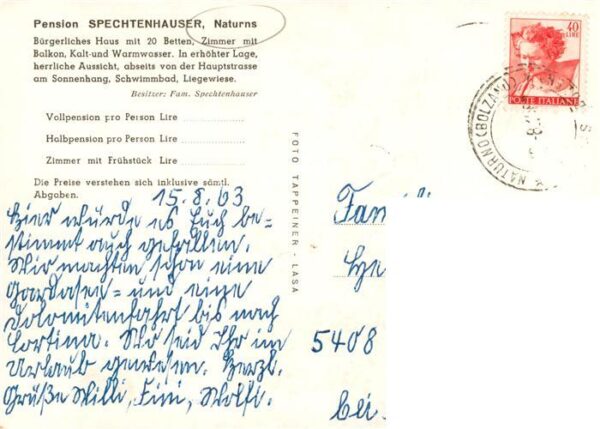 Pension SPECHTENHAUSER, Naturns
Bürgerliches Haus mit 20 Betten, Zimmer mit
Balkon, Kalt-und Warmwasser. In erhöhter Lage,
herrliche Aussicht, abseits von der Hauptstrasse
am Sonnenhang, Schwimmbad, Liegewiese.
Besitzer: Fam. Spechtenhauser
Vollpension pro Person Lire
Halbpension pro Person Lire
Zimmer mit Frühstück Lire
Die Preise verstehen sich inklusive sämtl.
Abgaben.
15.8.63
Hier würde es Euch be=
stimmt auch gefallen.
Wir machten schon eine
Gardasee= und eine
Dolomitenfahrt bis nach
Cortina. Wo seid Ihr im
Urlaub gewesen. Herzl.
Grüße Willi, Fini, Wolfi.
FOTO TAPPEINER - LASA
40
LIRE
POSTE ITALIANE
NATURNO (BOLZANO)
Fam
He
5408
bei